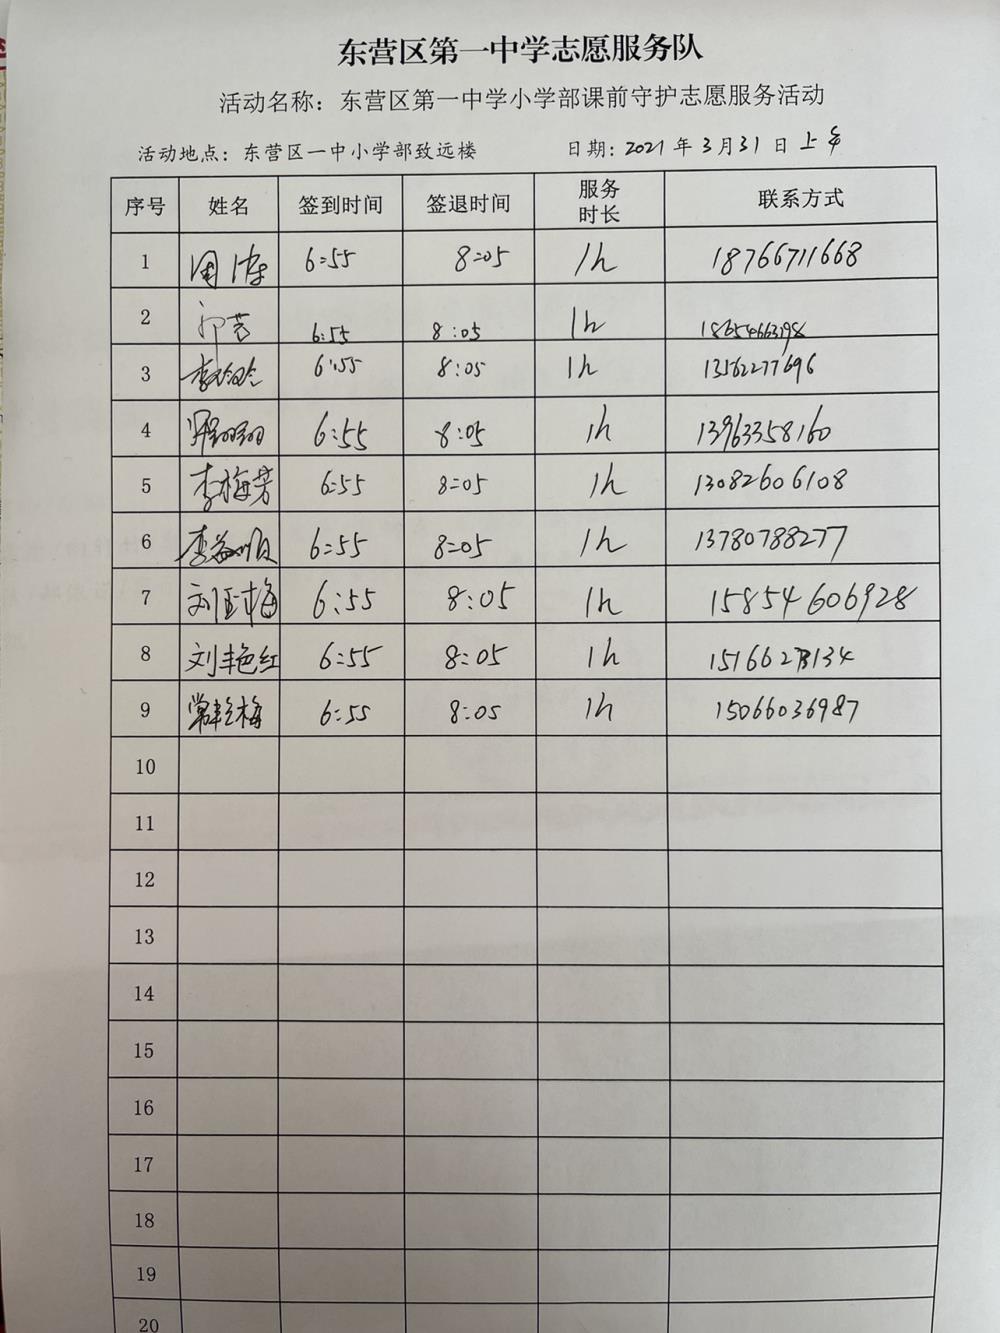 东营区第一中学志愿服务队
活动名称：东营区第一中学小学部课前守护志愿服务活动
活动地点：东营区一中小学部致远楼 日期：2021年3月31日上午
序号 姓名 签到时间 签退时间 服务时长 联系方式
1 周 6:55 8:05 1h 18766711668
2 6:55 8:05 1h 18654663198
3 李 6:55 8:05 1h 13562277696
4 6:55 8:05 1h 13963358160
5 李梅芳 6:55 8:05 1h 13082606108
6 李 6:55 8:05 1h 13780788277
7 刘 梅 6:55 8:05 1h 15854606928
8 刘艳红 6:55 8:05 1h
9 常艳梅 6:55 8:05 1h 15066036987
10
11
12
13
14
15
16
17
18
19
20